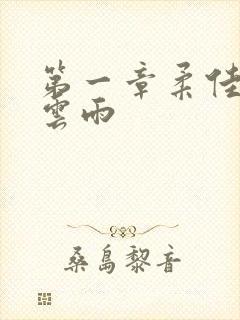 第一章柔佳
雲雨
桑島黎音